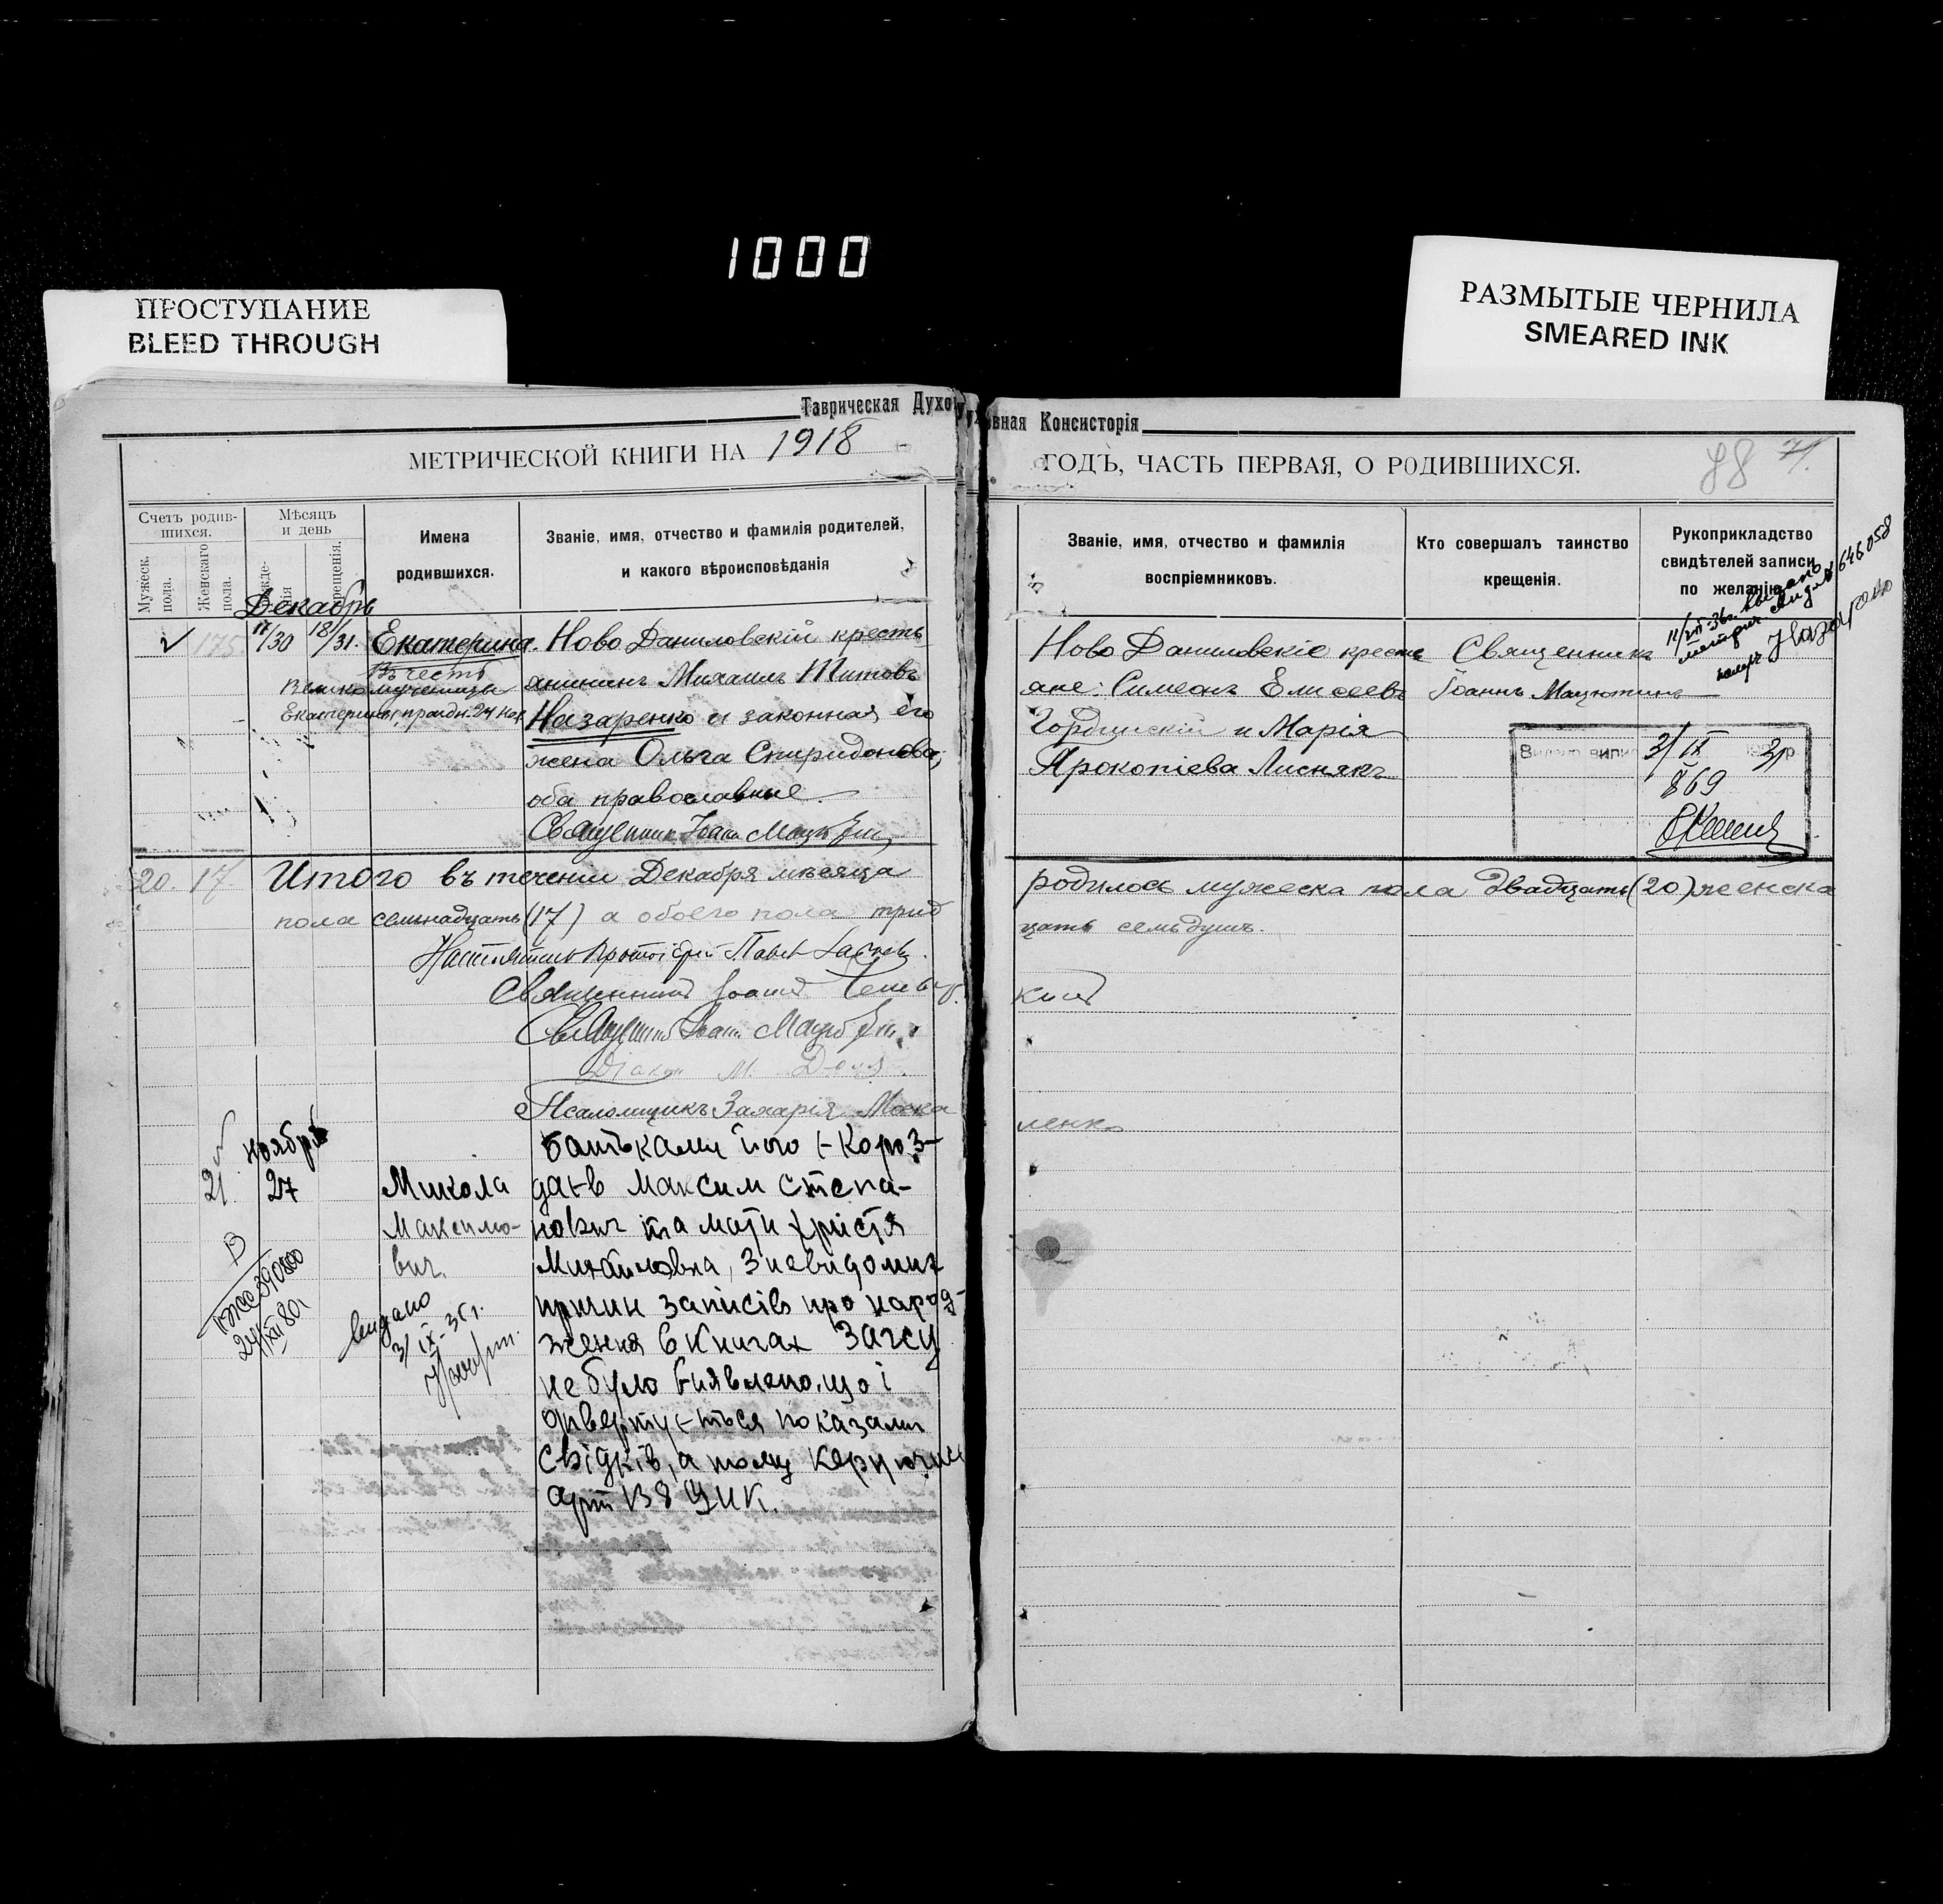 1000
ПРОСТУПАНИЕ
BLEED THROUGH
РАЗМЫТЫЕ ЧЕРНИЛА
SMEARED INK
Таврическая Духовная Консисторія
МЕТРИЧЕСКОЙ КНИГИ НА 1918
ГОДЪ, ЧАСТЬ ПЕРВАЯ, О РОДИВШИХСЯ.
88
Счетъ родив-
шихся.
Мужеск. пола.
Женскаго пола.
Мѣсяцъ
и день
крещенія.
Имена
родившихся.
Званіе, имя, отчество и фамилія родителей,
и какого вѣроисповѣданія
Званіе, имя, отчество и фамилія
воспріемниковъ.
Кто совершалъ таинство
крещенія.
Рукоприкладство
свидѣтелей записи
по желанію
646058
Декабрь
175
17/30 18/31. Екатерина.
Въ честь
Великомученицы
Екатерины, праздн. 24 Ноя
Ново Даниловскій кресть
янинъ Михаилъ Титовъ
Назаренко и законная его
жена Ольга Спиридонова,
оба православные.
Священник Іоанн
Ново Даниловскіе кресть
яне: Симеонъ Елисеевъ
и Марія
Прокопіева Лиснякъ
Священникъ
Іоаннъ Мацютинъ
3/IX
869
20. 17. Итого въ теченіи Декабря мѣсяца
родилось мужеска пола двадцать (20) женска
пола семнадцать (17) а обоего пола трид
цать семь душъ.
Протоіерей Павел
Священник Іоанн
Священник Іоанн
Діакон М.
Псаломщикъ Захарія Моска
ленко
ноября
21. 27
Микола
Максимо-
вич.
видано
3/IX-35 г.
24/XII 80
батьками його є Короз-
даєв Максим Степа-
нович та мати Христя
Михайловна, З невидомих
причин записів про народ-
ження в книгах Загсу
не було виявлено, що і
стверджується показами
свідків, а тому керуючись
арт ВУЦИК.